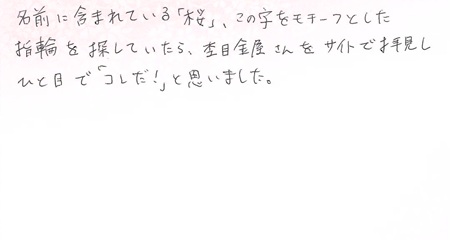 名前に含まれている「桜」、この字をモチーフとした
指輪を探していたら、杢目金屋さんをサイトでお見し
ひと目で「コレだ!」と思いました。